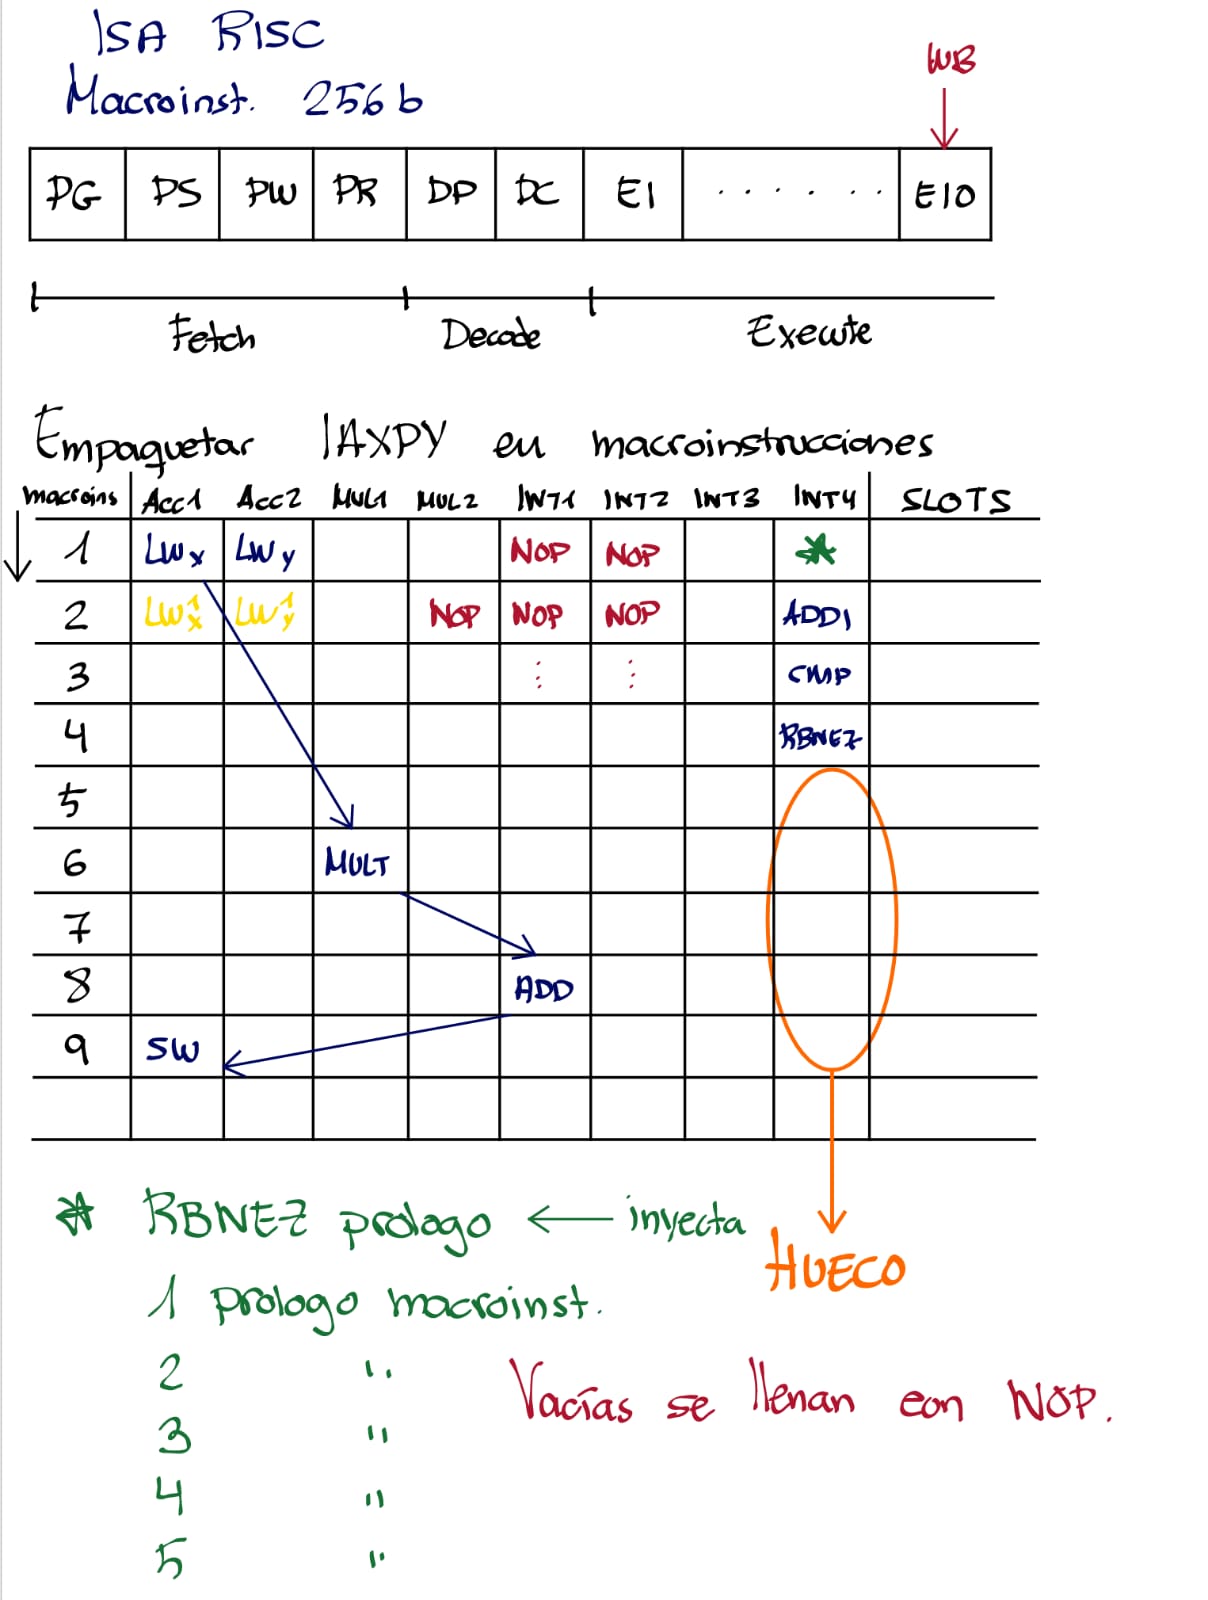 ISA RISC
Macroinst. 256 b
WB
PG PS PW PR DP DC E1 . . . . . . E10
Fetch Decode Execute
Empaquetar IAXPY en macroinstrucciones
macroins Acc1 Acc2 MUL1 MUL2 INT1 INT2 INT3 INT4 SLOTS
1 LWx LWy NOP NOP *
2 LW1x LW1y NOP NOP NOP ADD1
3 ⋮ ⋮ CMP
4 RBNEZ
5
6 MULT
7
8 ADD
9 SW
* RBNEZ prologo ← inyecta
HUECO
1 prologo macroinst.
2 "
3 "
4 "
5 "
Vacías se llenan con NOP.